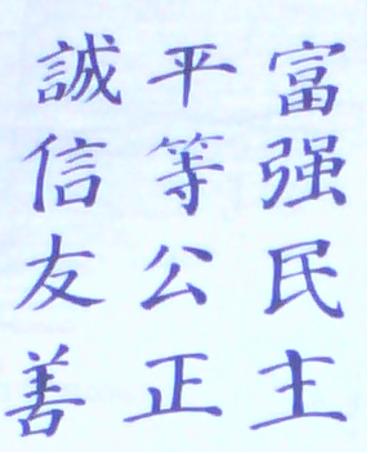 富强民主
平等公正
誠信友善